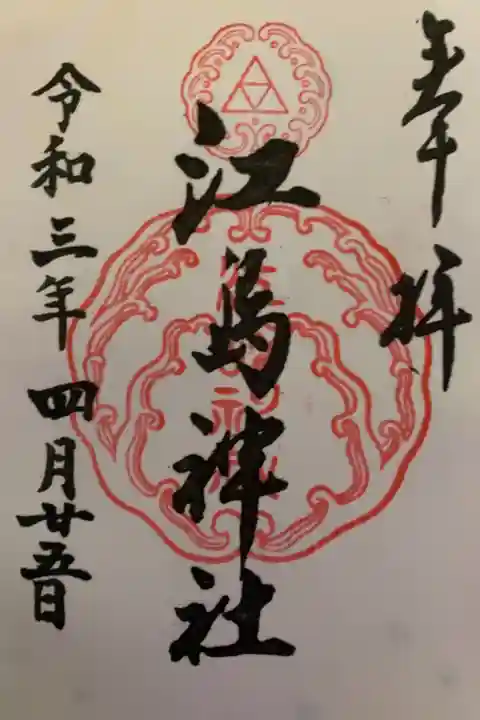 奉拝
江島神社
令和三年四月廿五日